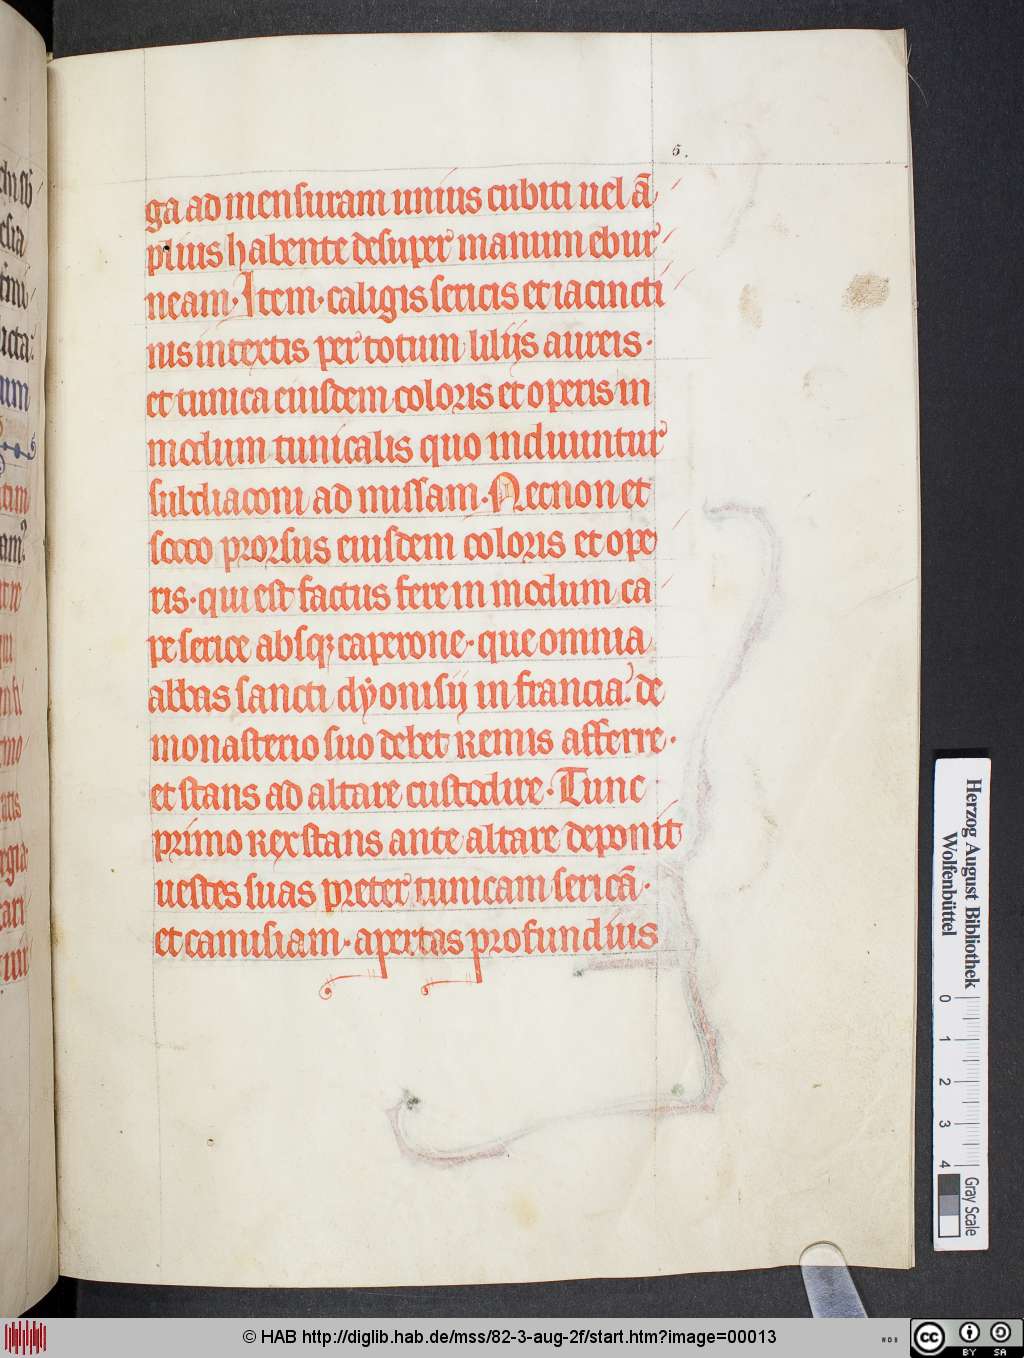 5.
ga ad mensuram unius cubiti uel ā
plius habente desuper manum ebur
neam. Item. caligis sericis et iacincti
nis intextis per totum liliis aureis.
et tunica eiusdem coloris et operis in
modum tunicalis quo induuntur
subdiaconi ad missam. Necnon et
socco prorsus eiusdem coloris et ope
ris. qui est factus fere in modum ca
pe serice absqꝫ caperone. que omnia
abbas sancti dyonisii in francia. de
monasterio suo debet Remis afferre.
et stans ad altare custodire. Tunc
primo rex stans ante altare deponit
uestes suas preter tunicam sericā.
et camisiam. apertas profundius
Herzog August Bibliothek
Wolfenbüttel
0 1 2 3 4
Gray Scale
© HAB http://diglib.hab.de/mss/82-3-aug-2f/start.htm?image=00013
cc BY SA